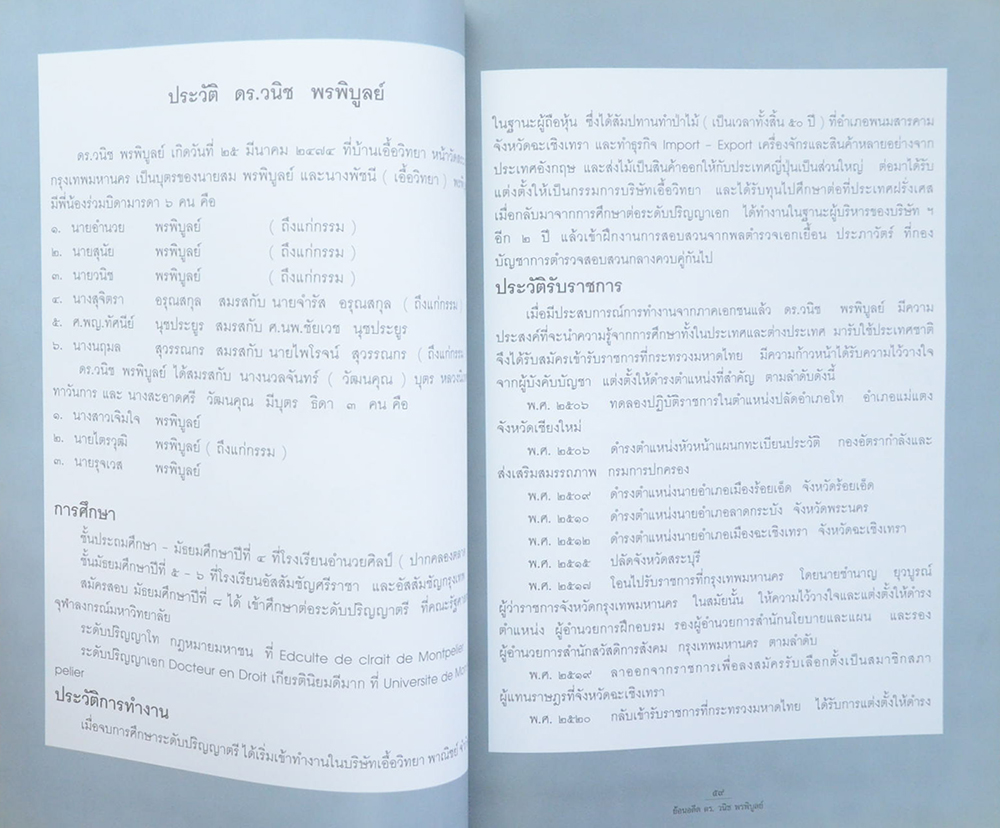 ประวัติ ดร.วนิช พรพิบูลย์
ดร.วนิช พรพิบูลย์ เกิดวันที่ ๒๕ มีนาคม ๒๔๗๔ ที่บ้านเอื้อวิทยา
กรุงเทพมหานคร เป็นบุตรของนายสม พรพิบูลย์ และนางพัชนี ( เอื้อวิทยา )
มีพี่น้องร่วมบิดามารดา ๖ คน คือ
๑. นายอำนวย พรพิบูลย์ ( ถึงแก่กรรม )
๒. นายสุนัย พรพิบูลย์ ( ถึงแก่กรรม )
๓. นายวนิช พรพิบูลย์ ( ถึงแก่กรรม )
๔. นางสุจิตรา อรุณสกุล สมรสกับ นายจำรัส อรุณสกุล ( ถึงแก่กรรม )
๕. ศ.พญ.ทัศนีย์ นุชประยูร สมรสกับ ศ.นพ.ชัยเวช นุชประยูร
๖. นางนฤมล สุวรรณกร สมรสกับ นายไพโรจน์ สุวรรณกร ( ถึงแก่กรรม
ดร.วนิช พรพิบูลย์ ได้สมรสกับ นางนวลจันทร์ ( วัฒนคุณ ) บุตร
ทาวันการ และ นางสะอาดศรี วัฒนคุณ มีบุตร ธิดา ๓ คน คือ
๑. นางสาวเจิมใจ พรพิบูลย์
๒. นายไตรวุฒิ พรพิบูลย์ ( ถึงแก่กรรม )
๓. นายรุจเวส พรพิบูลย์
การศึกษา
ชั้นประถมศึกษา – มัธยมศึกษาปีที่ ๔ ที่โรงเรียนอำนวยศิลป์
ชั้นมัธยมศึกษาปีที่ ๕ – ๖ ที่โรงเรียนอัสสัมชัญศรีราชา และอัสสัมชัญกรุงเทพ
สมัครสอบ มัธยมศึกษาปีที่ ๘ ได้ เข้าศึกษาต่อระดับปริญญาตรี ที่คณะ
จุฬาลงกรณ์มหาวิทยาลัย
ระดับปริญญาโท กฎหมายมหาชน ที่ Edculte de clrait de Montpelier
ระดับปริญญาเอก Docteur en Droit เกียรตินิยมดีมาก ที่ Universite de
pelier
ประวัติการทำงาน
เมื่อจบการศึกษาระดับปริญญาตรี ได้เริ่มเข้าทำงานในบริษัทเอื้อวิทยา พาณิชย์
ในฐานะผู้ถือหุ้น ซึ่งได้สัมปทานทำป่าไม้ ( เป็นเวลาทั้งสิ้น ๕๐ ปี ) ที่อำเภอพนมสารคาม
จังหวัดฉะเชิงเทรา และทำธุรกิจ Import – Export เครื่องจักรและสินค้าหลายอย่างจาก
ประเทศอังกฤษ และส่งไม้เป็นสินค้าออกให้กับประเทศญี่ปุ่นเป็นส่วนใหญ่ ต่อมาได้รับ
แต่งตั้งให้เป็นกรรมการบริษัทเอื้อวิทยา และได้รับทุนไปศึกษาต่อที่ประเทศฝรั่งเศส
เมื่อกลับมาจากการศึกษาต่อระดับปริญญาเอก ได้ทำงานในฐานะผู้บริหารของบริษัท ฯ
อีก ๒ ปี แล้วเข้าฝึกงานการสอบสวนจากพลตำรวจเอกเยื้อน ประภาวัตร์ ที่กอง
บัญชาการตำรวจสอบสวนกลางควบคู่กันไป
ประวัติรับราชการ
เมื่อมีประสบการณ์การทำงานจากภาคเอกชนแล้ว ดร.วนิช พรพิบูลย์ มีความ
ประสงค์ที่จะนำความรู้จากการศึกษาทั้งในประเทศและต่างประเทศ มารับใช้ประเทศชาติ
จึงได้รับสมัครเข้ารับราชการที่กระทรวงมหาดไทย มีความก้าวหน้าได้รับความไว้วางใจ
จากผู้บังคับบัญชา แต่งตั้งให้ดำรงตำแหน่งที่สำคัญ ตามลำดับดังนี้
พ.ศ. ๒๕๐๖ ทดลองปฏิบัติราชการในตำแหน่งปลัดอำเภอโท อำเภอแม่แตง
จังหวัดเชียงใหม่
พ.ศ. ๒๕๐๖ ดำรงตำแหน่งหัวหน้าแผนกทะเบียนประวัติ กองอัตรากำลังและ
ส่งเสริมสมรรถภาพ กรมการปกครอง
พ.ศ. ๒๕๐๙ ดำรงตำแหน่งนายอำเภอเมืองร้อยเอ็ด จังหวัดร้อยเอ็ด
พ.ศ. ๒๕๑๐ ดำรงตำแหน่งนายอำเภอลาดกระบัง จังหวัดพระนคร
พ.ศ. ๒๕๑๒ ดำรงตำแหน่งนายอำเภอเมืองฉะเชิงเทรา จังหวัดฉะเชิงเทรา
พ.ศ. ๒๕๑๕ ปลัดจังหวัดสระบุรี
พ.ศ. ๒๕๑๗ โอนไปรับราชการที่กรุงเทพมหานคร โดยนายชำนาญ ยุวบูรณ์
ผู้ว่าราชการจังหวัดกรุงเทพมหานคร ในสมัยนั้น ให้ความไว้วางใจและแต่งตั้งให้ดำรง
ตำแหน่ง ผู้อำนวยการฝึกอบรม รองผู้อำนวยการสำนักนโยบายและแผน และรอง
ผู้อำนวยการสำนักสวัสดิการสังคม กรุงเทพมหานคร ตามลำดับ
พ.ศ. ๒๕๑๙ ลาออกจากราชการเพื่อลงสมัครรับเลือกตั้งเป็นสมาชิกสภา
ผู้แทนราษฎรที่จังหวัดฉะเชิงเทรา
พ.ศ. ๒๕๒๐ กลับเข้ารับราชการที่กระทรวงมหาดไทย ได้รับการแต่งตั้งให้ดำรง
๕๙
ย้อนอดีต ดร. วนิช พรพิบูลย์